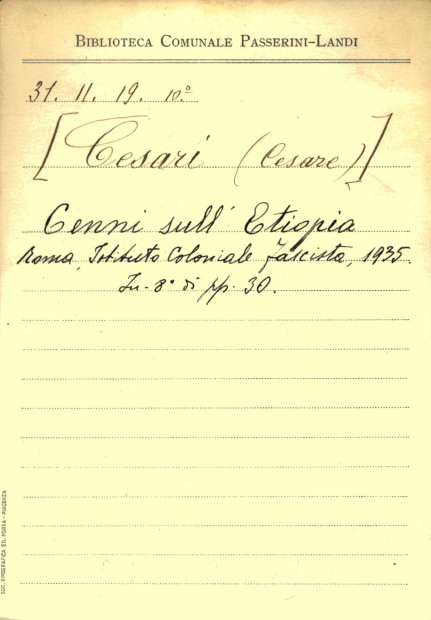 BIBLIOTECA COMUNALE PASSERINI-LANDI
31. 11. 19. 10º
[Cesari (Cesare)]
Cenni sull' Etiopia
Roma, Istituto Coloniale fascista, 1935.
In-8º di pp. 30.
SOC. TIPOGRAFICA ED. PORTA - PIACENZA